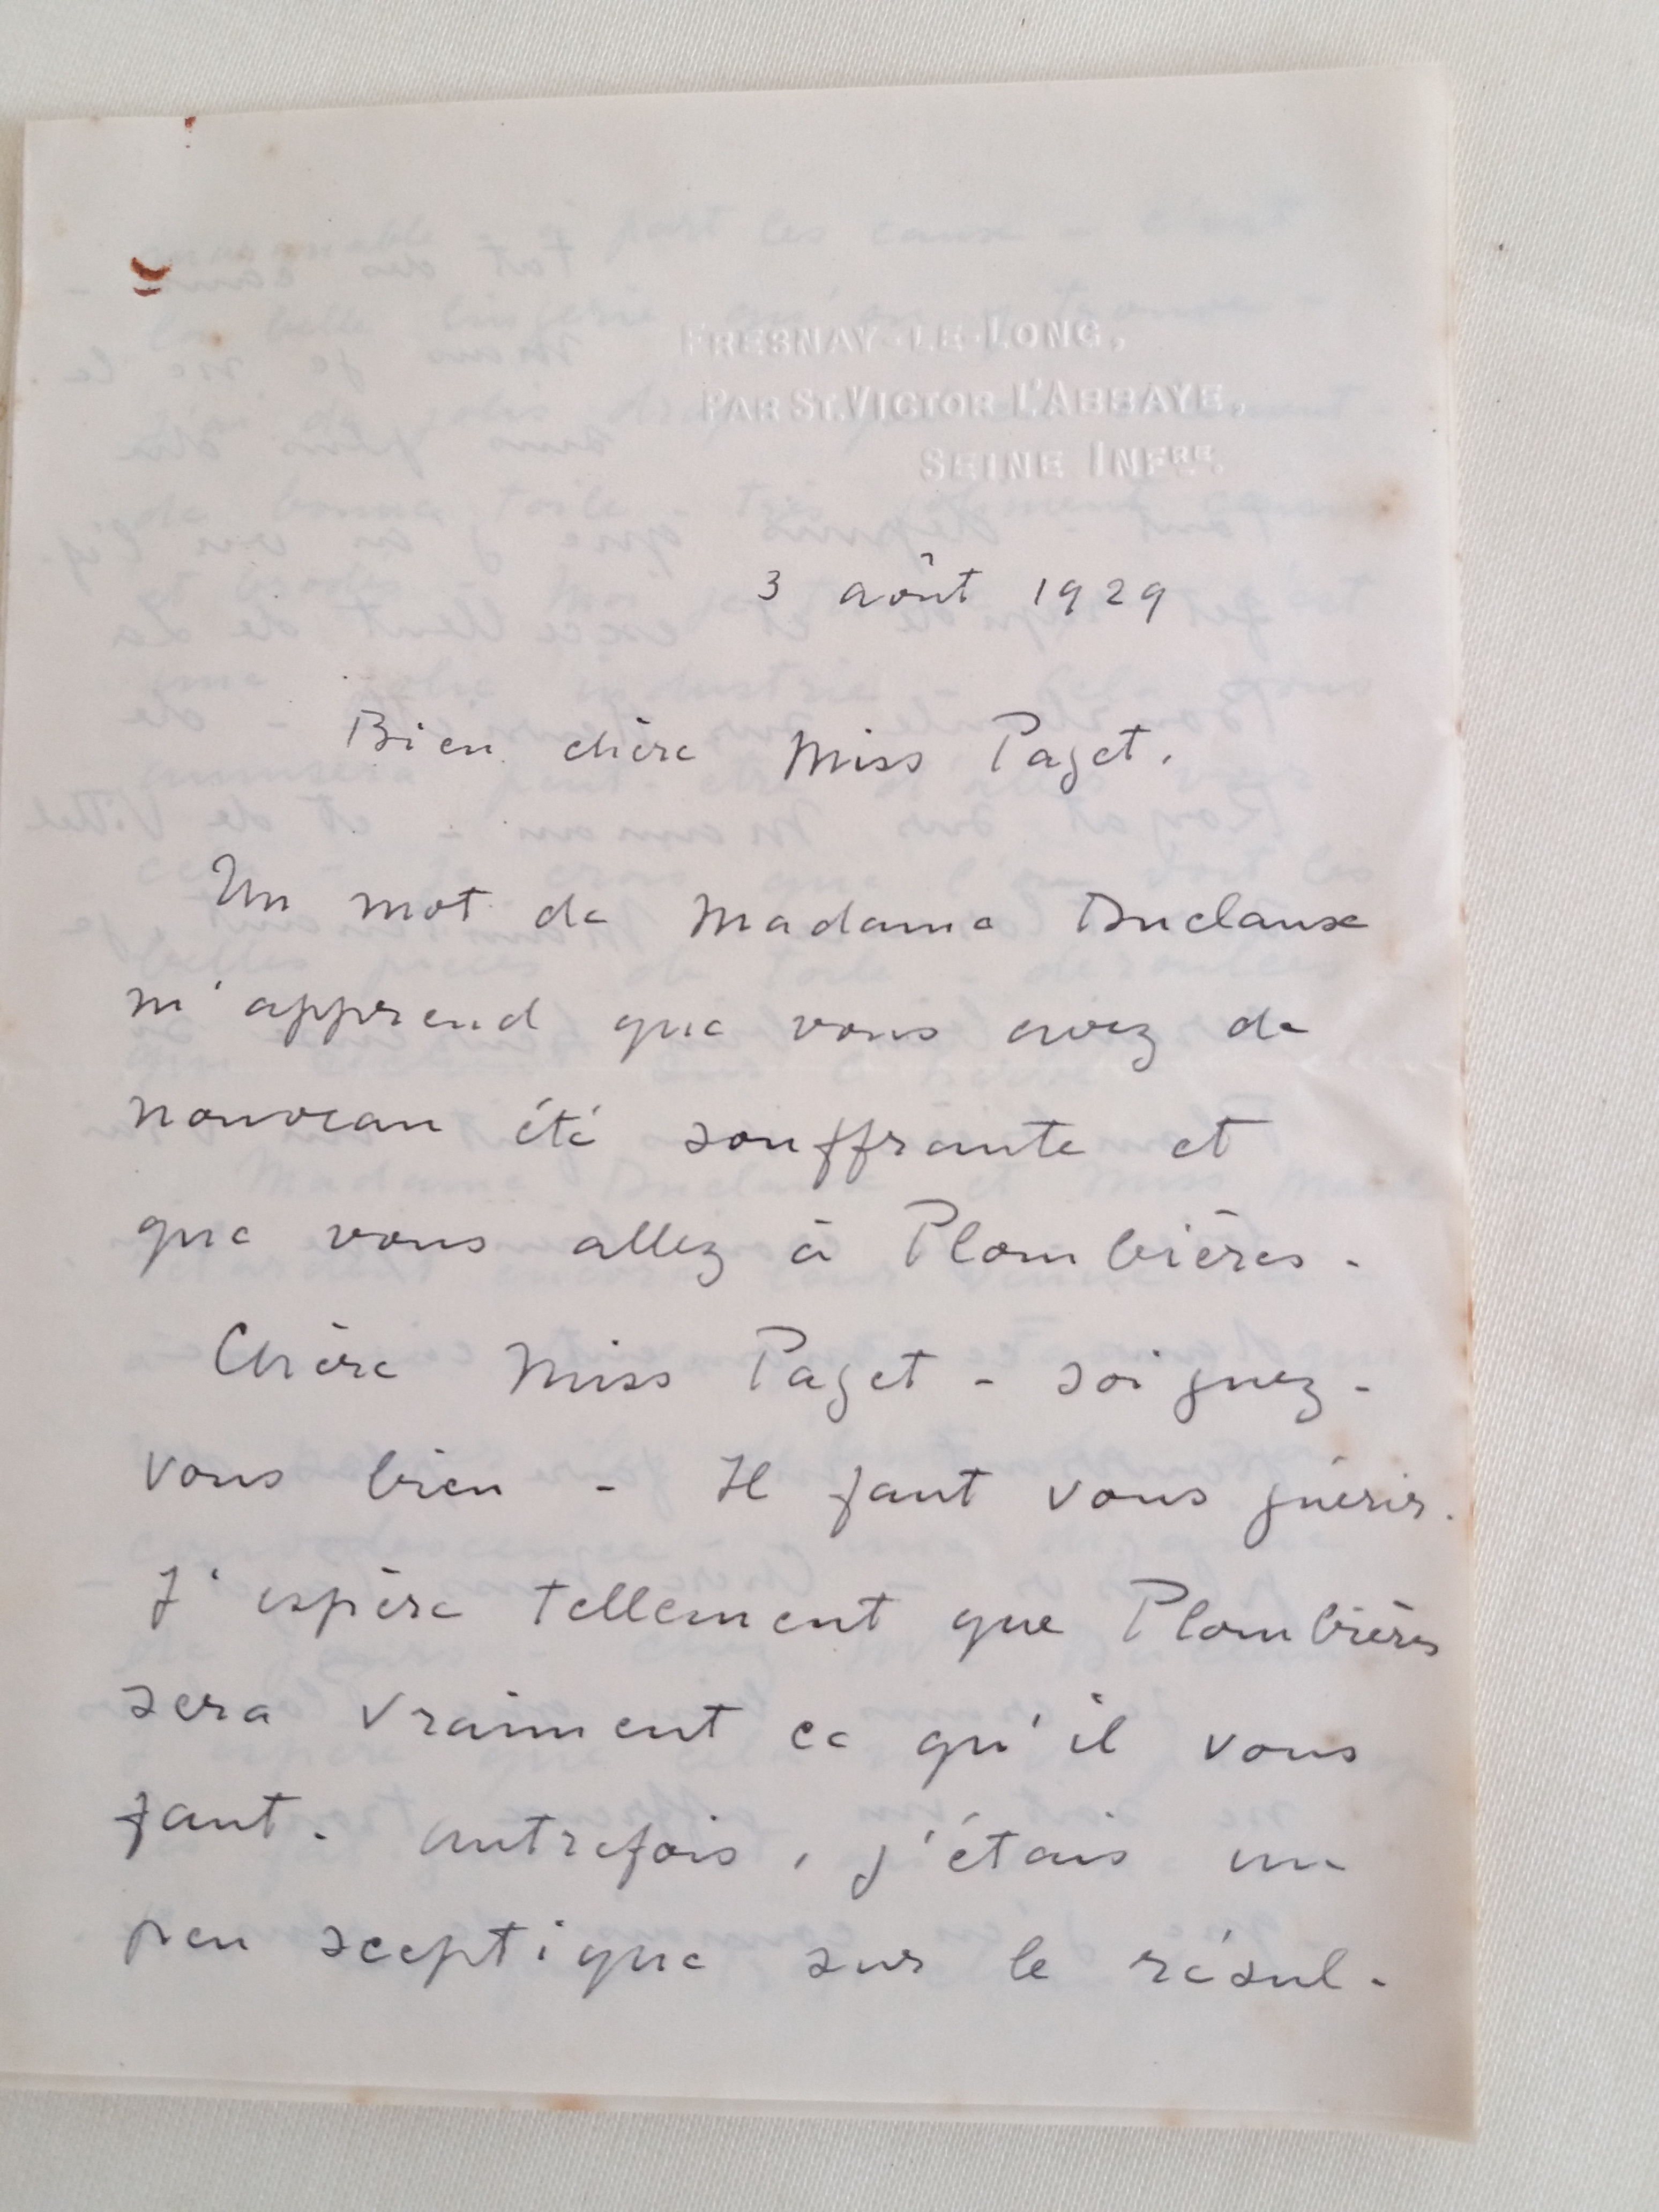 FRESNAY-LE-LONG,
PAR ST. VICTOR L'ABBAYE,
SEINE INFRE.
3 août 1929
Bien chère Miss Paget,
Un mot de Madame Duclaux
m'apprend que vous avez de
nouveau été souffrante et
que vous allez à Plombières -
Chère Miss Paget - soignez-
vous bien - Il faut vous guérir.
J'espère tellement que Plombières
sera vraiment ce qu'il vous
faut. Autrefois, j'étais un
peu sceptique sur le résul-